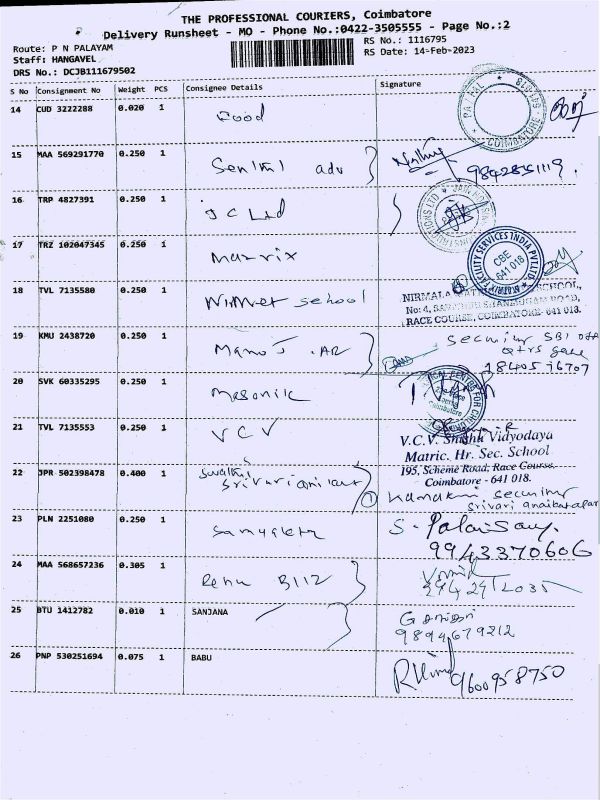 THE PROFESSIONAL COURIERS, Coimbatore
Delivery Runsheet - MO - Phone No.:0422-3505555 - Page No.:2
Route: P N PALAYAM
RS No.: 1116795
Staff: HANGAVEL
RS Date: 14-Feb-2023
DRS No.: DCJB111679502
S No Consignment No Weight PCS Consignee Details Signature
14 CUD 3222288 0.020 1
COIMBATORE
15 MAA 569291770 0.250 1 Senthil adv
16 TRP 4827391 0.250 1 J C Ltd
17 TRZ 102047345 0.250 1 Matrix
FACILITY SERVICES INDIA PVT LTD
CBE
641 018
18 TVL 7135580 0.250 1 school
NIRMALA SCHOOL,
RACE COURSE, COIMBATORE- 641 018.
19 KMU 2438720 0.250 1 Manoj .AR
Security SBI
20 SVK 60335295 0.250 1 Masonik
Coimbatore
21 TVL 7135553 0.250 1 V C V
V.C.V. Shishu Vidyodaya
Matric. Hr. Sec. School
195, Scheme Road, Race Course,
Coimbatore - 641 018.
22 JPR 502398478 0.400 1 Swathi
security
23 PLN 2251080 0.250 1
9943370606
24 MAA 568657236 0.305 1 Renu B112
25 BTU 1412782 0.010 1 SANJANA
9894679212
26 PNP 530251694 0.075 1 BABU
9600958750